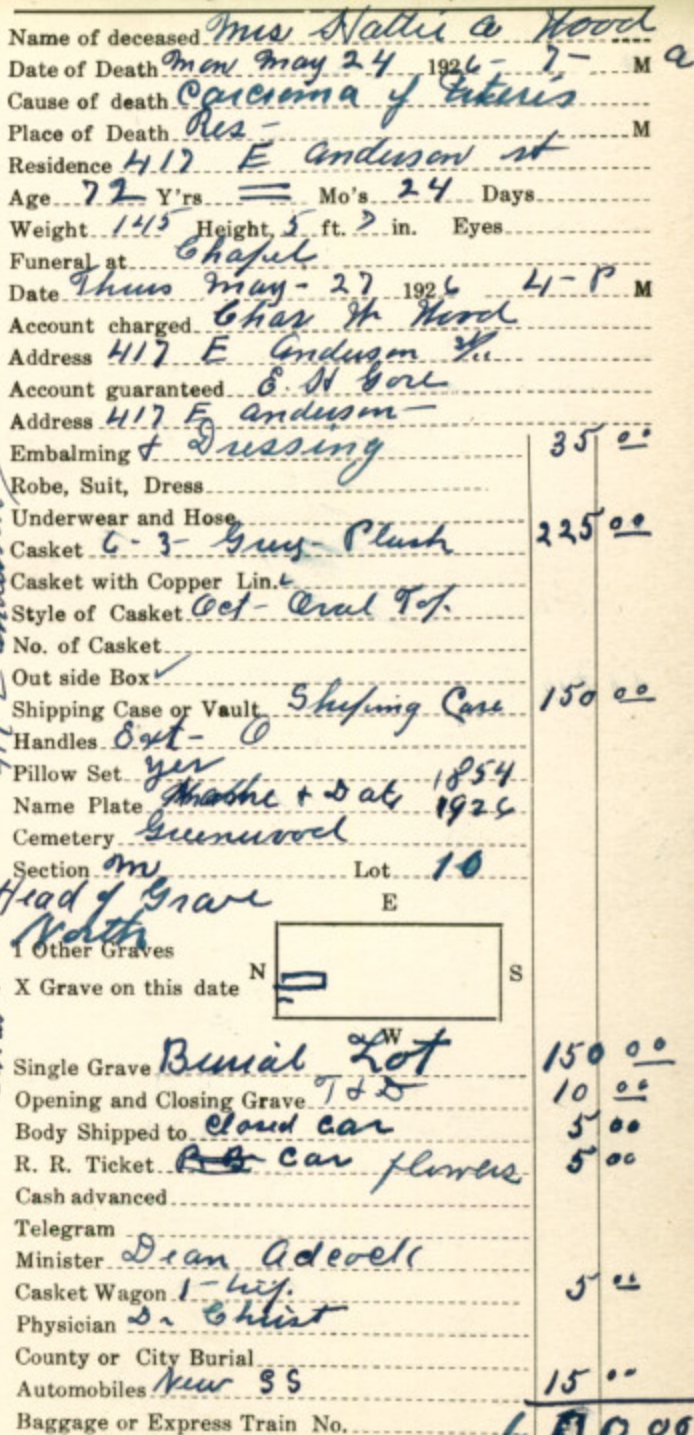 Name of deceased Mrs Hattie A Wood
Date of Death Mon May 24 1926 - 7 - M a
Cause of death Carcinoma of Uteris
Place of Death Res - M
Residence 417 E Anderson st
Age 72 Y'rs = Mo's 24 Days
Weight 145 Height, 5 ft. 7 in. Eyes
Funeral at Chapel
Date Thurs May - 27 1926 4 - P M
Account charged Chas W Wood
Address 417 E Anderson
Account guaranteed E. H Gore
Address 417 E Anderson -
Embalming & Dressing 35 00
Robe, Suit, Dress
Underwear and Hose
Casket 6 - 3 - Grey - Plush 225 00
Casket with Copper Lin.
Style of Casket Oct - Oval Top.
No. of Casket
Out side Box ✓
Shipping Case or Vault Shiping Case 150 00
Handles Ext - O
Pillow Set yes 1854
Name Plate & Date 1926
Cemetery Greenwood
Section M Lot 10
Head of Grave E
North
1 Other Graves
X Grave on this date N S
W
Single Grave Burial Lot 150 00
Opening and Closing Grave T & D 10 00
Body Shipped to Closed Car 5 00
R. R. Ticket Car flowers 5 00
Cash advanced
Telegram
Minister Dean Adcock
Casket Wagon 1 - 5 00
Physician Dr Christ
County or City Burial
Automobiles New SS 15 00
Baggage or Express Train No.